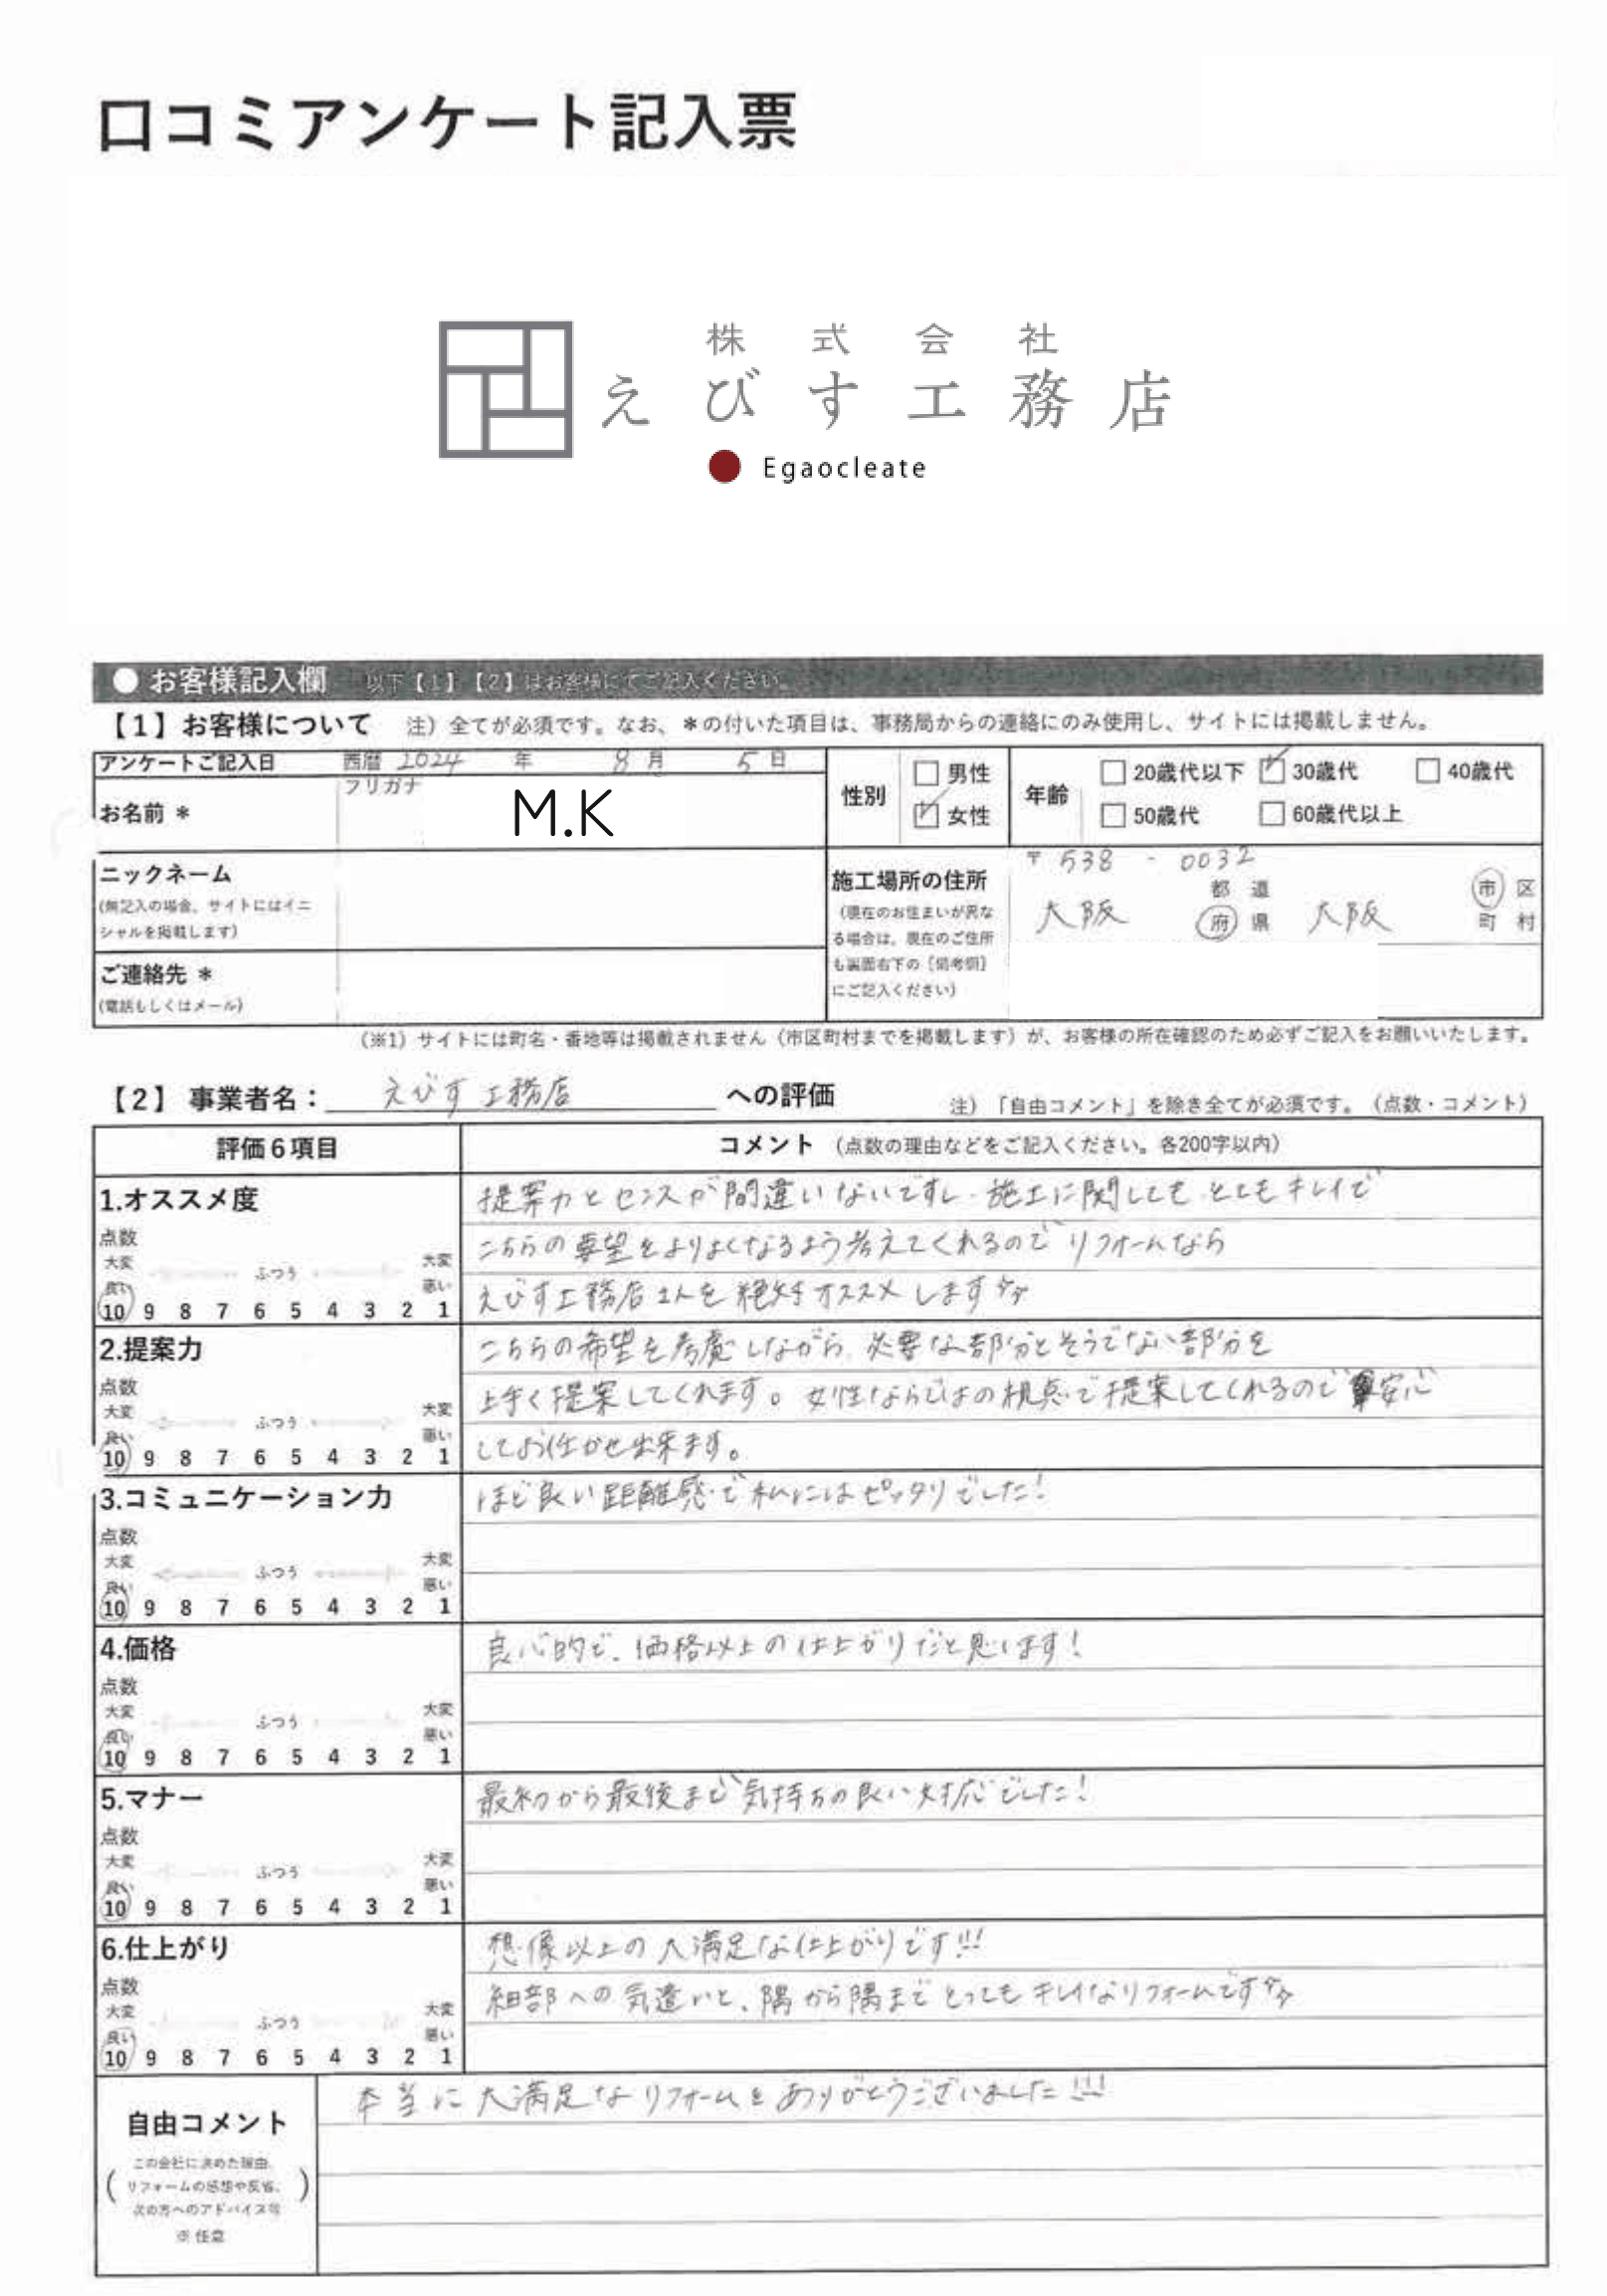 口コミアンケート記入票
株式会社
えびす工務店
Egaocleate
● お客様記入欄 以下【1】【2】はお客様にてご記入ください。
【1】お客様について 注）全てが必須です。なお、＊の付いた項目は、事務局からの連絡にのみ使用し、サイトには掲載しません。
アンケートご記入日 西暦 2024 年 8 月 5 日
フリガナ
お名前 ＊ M.K
性別 男性 女性
年齢 20歳代以下 30歳代 40歳代
50歳代 60歳代以上
ニックネーム
(無記入の場合、サイトにはイニ
シャルを掲載します)
ご連絡先 ＊
(電話もしくはメール)
施工場所の住所
(現在のお住まいが異な
る場合は、現在のご住所
も裏面右下の［備考欄］
にご記入ください)
〒 538 - 0032
大阪 都道府県 大阪 市区町村
(※1) サイトには町名・番地等は掲載されません（市区町村までを掲載します）が、お客様の所在確認のため必ずご記入をお願いいたします。
【2】事業者名： えびす工務店 への評価 注）「自由コメント」を除き全てが必須です。（点数・コメント）
評価6項目 コメント （点数の理由などをご記入ください。各200字以内）
1.オススメ度
点数
大変良い ふつう 大変悪い
10 9 8 7 6 5 4 3 2 1
提案力とセンスが間違いないですし、施工に関しても とてもキレイで
こちらの要望をよりよくなるよう考えてくれるので リフォームなら
えびす工務店さんを絶対オススメします☆☆
2.提案力
点数
大変良い ふつう 大変悪い
10 9 8 7 6 5 4 3 2 1
こちらの希望を考慮しながら、必要な部分とそうでない部分を
上手く提案してくれます。女性ならではの視点で提案してくれるので 安心
してお任せ出来ます。
3.コミュニケーション力
点数
大変良い ふつう 大変悪い
10 9 8 7 6 5 4 3 2 1
ほど良い距離感で私にはピッタリでした！
4.価格
点数
大変良い ふつう 大変悪い
10 9 8 7 6 5 4 3 2 1
良心的で、価格以上の仕上がりだと思います！
5.マナー
点数
大変良い ふつう 大変悪い
10 9 8 7 6 5 4 3 2 1
最初から最後まで気持ちの良い対応でした！
6.仕上がり
点数
大変良い ふつう 大変悪い
10 9 8 7 6 5 4 3 2 1
想像以上の大満足な仕上がりです!!!
細部への気遣いと、隅から隅までとってもキレイなリフォームです☆☆
自由コメント
この会社に決めた理由、
リフォームの感想や反省、
次の方へのアドバイス等
※任意
本当に大満足なリフォームをありがとうございました!!!